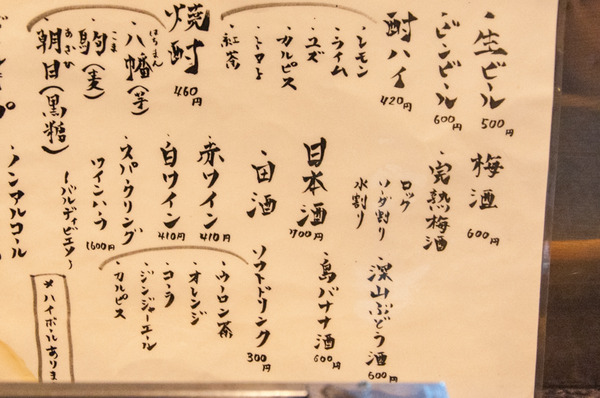 ・生ビール 500円
・ビンビール 600円
酎ハイ 420円
・レモン
・ライム
・ユズ
・カルピス
・トマト
・紅茶
焼酎 460円
・八幡(芋)
はちまん
・駒(麦)
こま
・朝日(黒糖)
あさひ
梅酒 600円
・完熟梅酒
ロック
ソーダ割り
水割り
日本酒 700円
・田酒
・赤ワイン 410円
・白ワイン 410円
・スパークリング
ワインハーフ 1600円
・ノンアルコール
・深山ぶどう酒 600円
・島バナナ酒 600円
ソフトドリンク 300円
・ウーロン茶
・オレンジ
・コーラ
・ジンジャーエール
・カルピス
*ハイボールありま